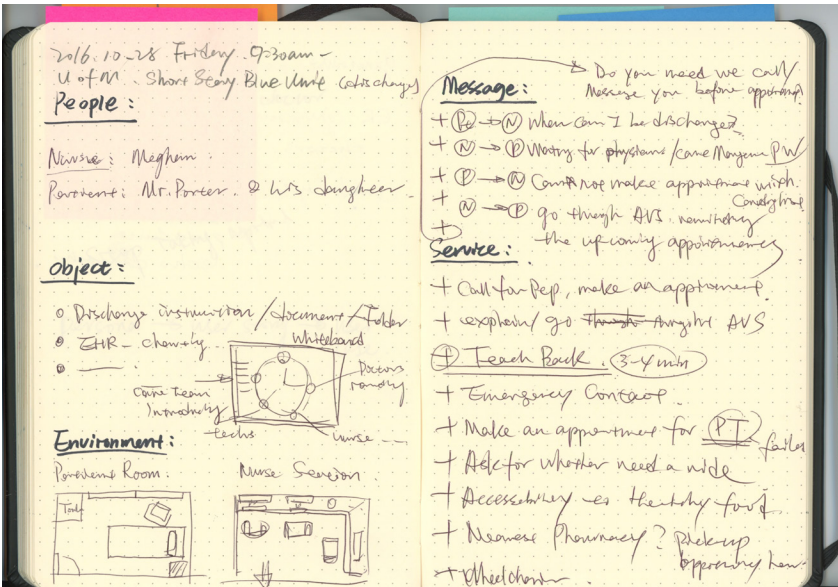 2016.10-28 Friday. 9:30am -
U of M. Short Story Blue Unit (discharge)
People:
Nurse: Meghan.
Patient: Mr. Porter. & his daughter.
Object:
Discharge instruction/document/Folder
EHR - charting..
Whiteboard
Doctors
rounding
Care Team
Introducing
techs
nurse ....
Environment:
Patient Room.
Nurse Station.
Toilet
Do you need we call/
Message you before appointment?
Message:
+ Pt → N When can I be discharge?
+ N → P Waiting for physicians/care Manager PW
+ P → N Can not make appointment with
+ N → P go through AVS. reminding
the upcoming appointments
+
Service:
+ Call for Pep, make an appointment.
+ explain/go through through AVS
+ Teach Back. 3-4 min
+ Emergency Contact.
+ Make an appointment for PT
+ Ask for whether need a ride
+ Accessibility es healthy food.
+ Nearest Pharmacy? Pick up
+ Wheelchair